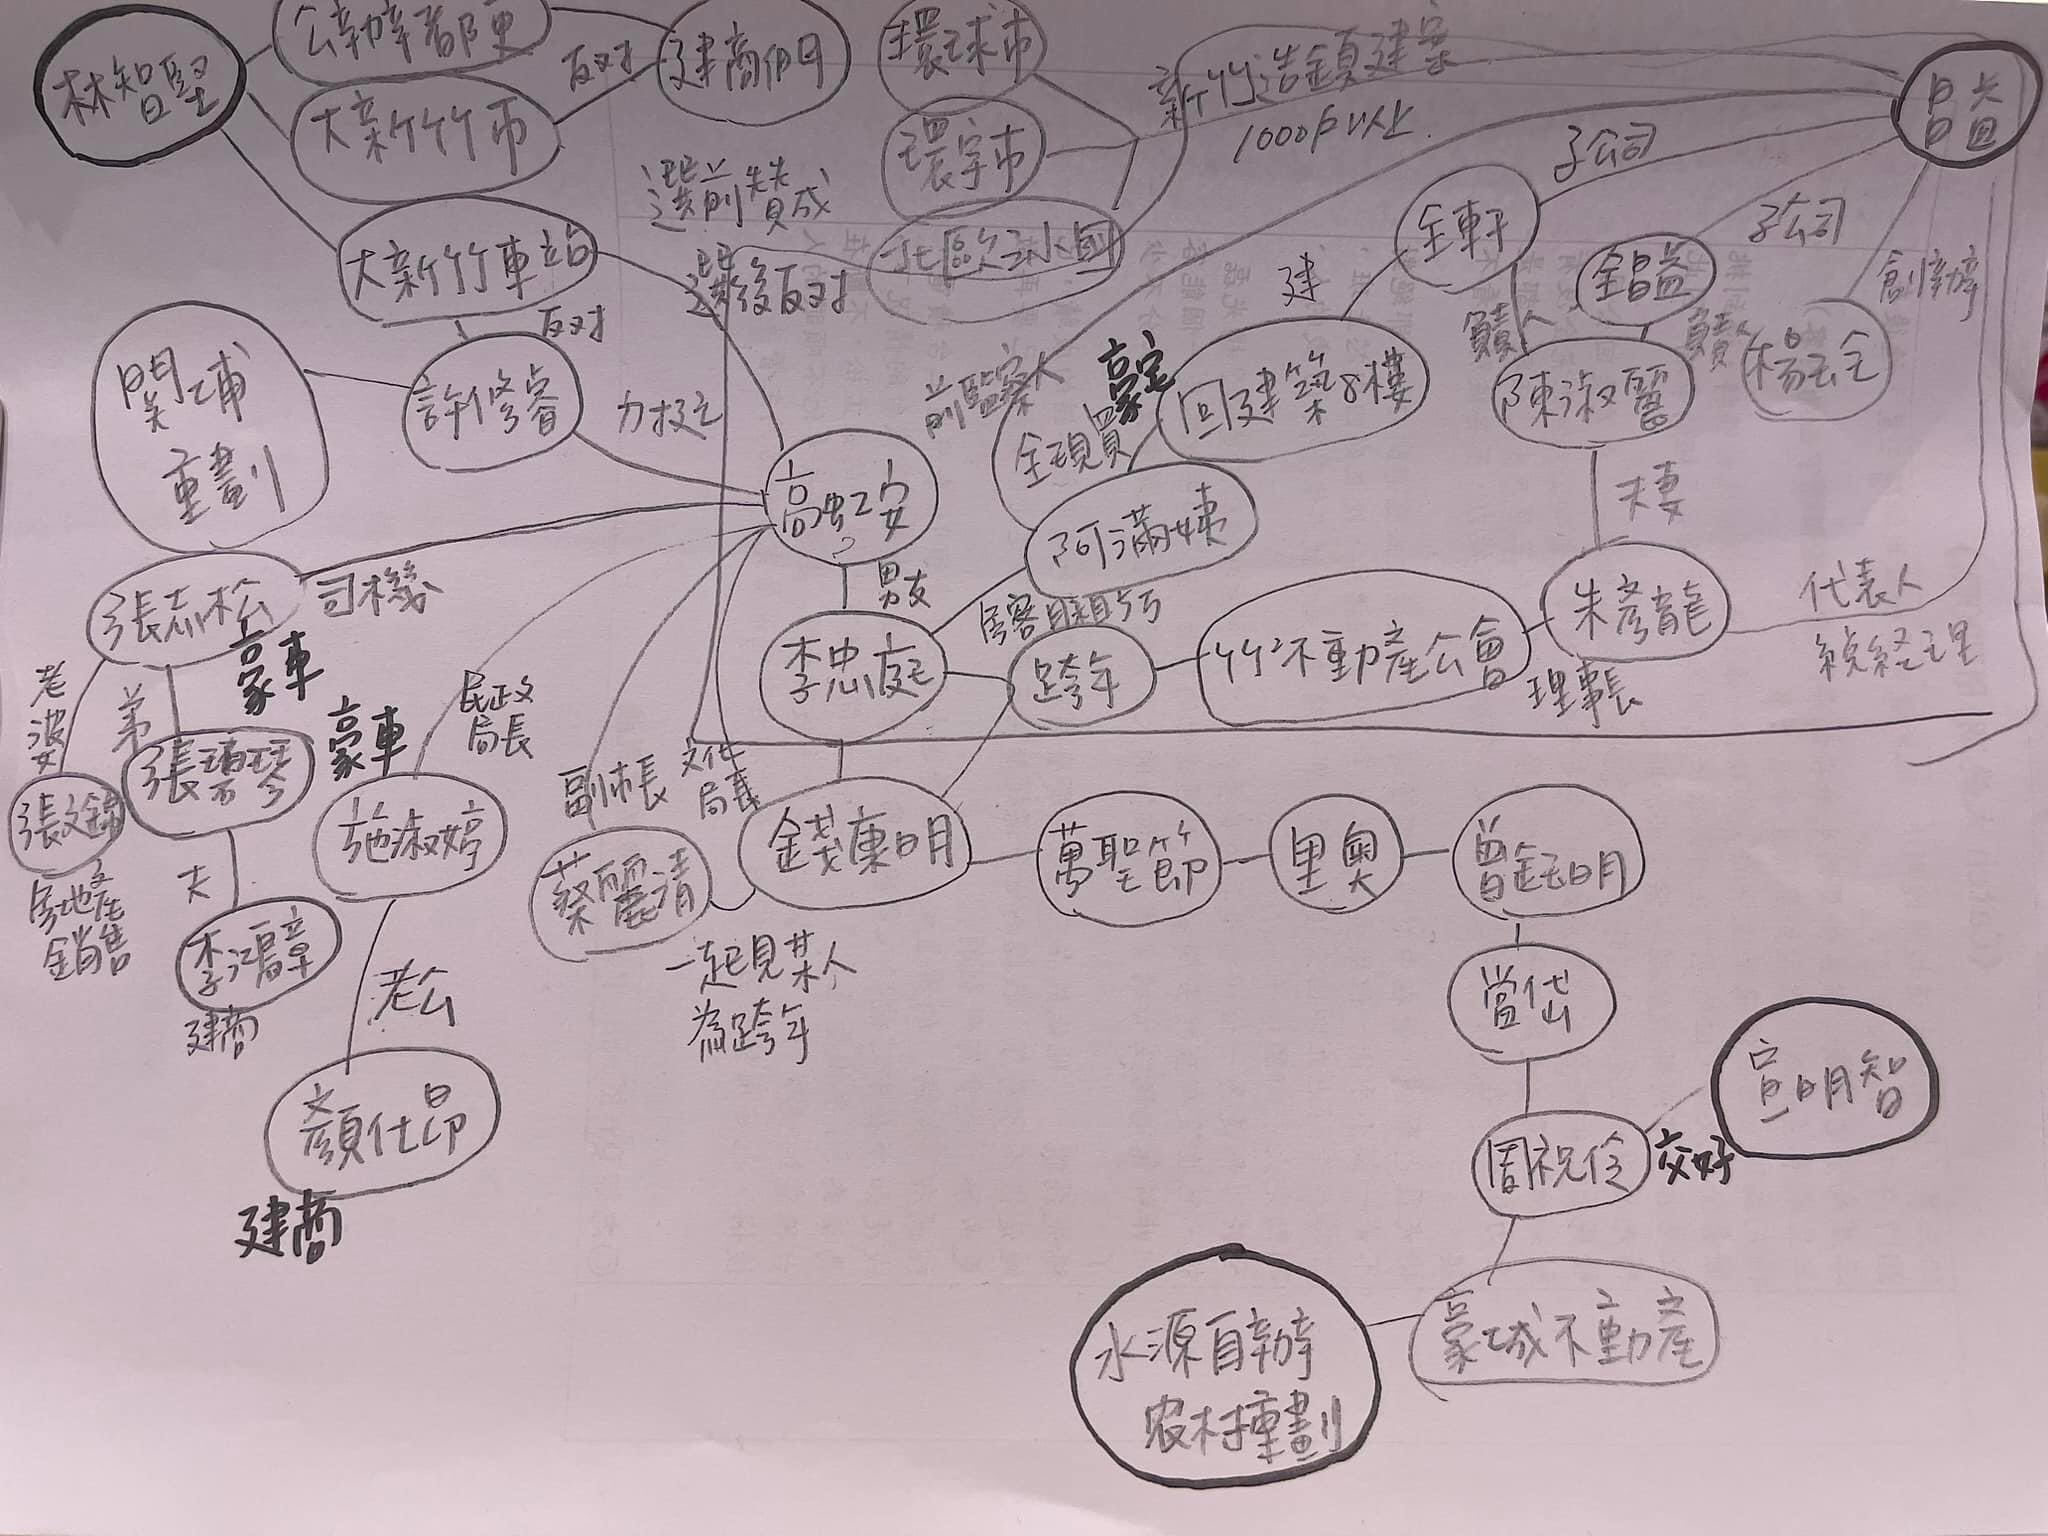 林智堅
公辦都更
大新竹市
反対
建商們
大新竹車站
反対
許修睿
関埔
重劃
力挺
選前賛成
選後反対
環球市
環宇市
北歐小国
新竹造鎮建案
1000戶以上
昌益
子公司
子公司
創辦
金軒
負責人
建
回建築8樓
負責人
陳淑麗
夫妻
朱彥龍
理事長
代表人
総経理
前監察人
豪宅
全現買
阿滿姨
高虹安
男友
李忠庭
跨年
竹市不動產公會
司機
張志松
豪車
老婆
弟
張碧琴
夫
李鴻章
建商
房地產
銷售
民政
局長
豪車
施淑婷
老公
顏仕昂
建商
副市長
蔡麗清
文化
局長
錢康明
一起見某人
為跨年
萬聖節
里奥
曾鈺明
當代
周祝伶
交好
宣明智
豪城不動產
水源自辦
农村重劃